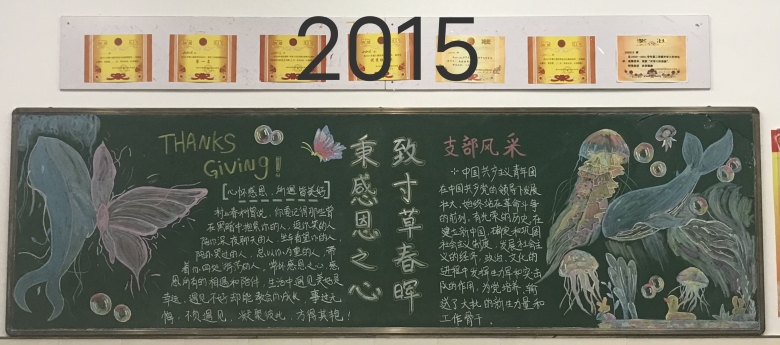 2015
THANKS
GIVING!
[心怀感恩，所遇皆美好]
村上春树曾说，你要记得那些曾
在黑暗中抱紧你的人，逗你笑的人
陪你深夜聊天的人，坐车看望你的人，
陪你哭过的人，总以你为重的人，带
着你四处游荡的人。常怀感恩之心，感
恩所有的相遇和陪伴，生活中遇见美好是
幸运，遇见不好却能教会你成长，事过无
悔，不负遇见，凝聚彼此，方得其艳！
秉感恩之心
致寸草春晖
支部风采
中国共产主义青年团
在中国共产党的领导下发展
壮大，始终站在革命斗争
的前列，有光荣的历史，在
建立新中国，确定和巩固
社会主义制度，发展社会主
义的经济、政治、文化的
进程中发挥生力军和突击
队的作用，为党培养、输
送了大批的新生力量和
工作骨干。